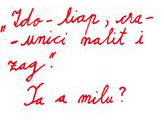 "Ido-liap, cra-
-unici nalit i
zag".
Ta a milu?